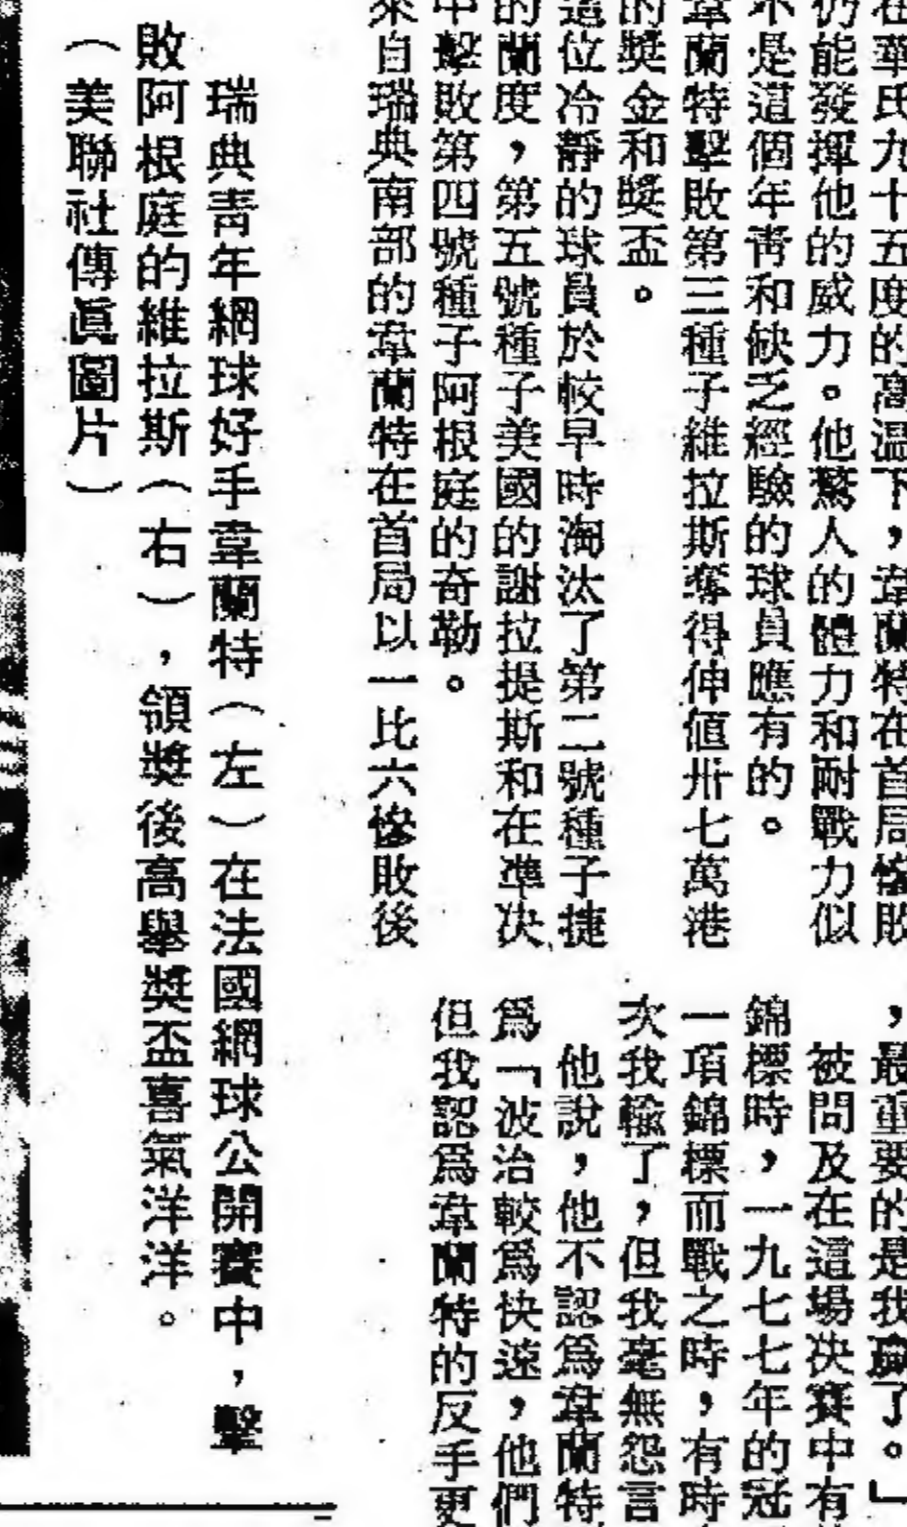 在華氏九十五度的高温下，韋蘭特在首局慘敗
仍能發揮他的威力。他驚人的體力和耐戰力似
不是這個年靑和缺乏經驗的球員應有的。
韋蘭特擊敗第三種子維拉斯奪得伸値卅七萬港
的獎金和獎盃。
這位冷靜的球員於較早時淘汰了第二號種子捷
的蘭度，第五號種子美國的謝拉提斯和在準决
中擊敗第四號種子阿根庭的奇勒。
來自瑞典南部的韋蘭特在首局以一比六慘敗後
，最重要的是我贏了。」
被問及在這場决賽中有
錦標時，一九七七年的冠
一項錦標而戰之時，有時
次我輸了，但我毫無怨言
他說，他不認爲韋蘭特
爲「波治較爲快速，他們
但我認爲韋蘭特的反手更
瑞典靑年網球好手韋蘭特（左）在法國網球公開賽中，擊
敗阿根庭的維拉斯（右），領獎後高舉獎盃喜氣洋洋。
（美聯社傳眞圖片）